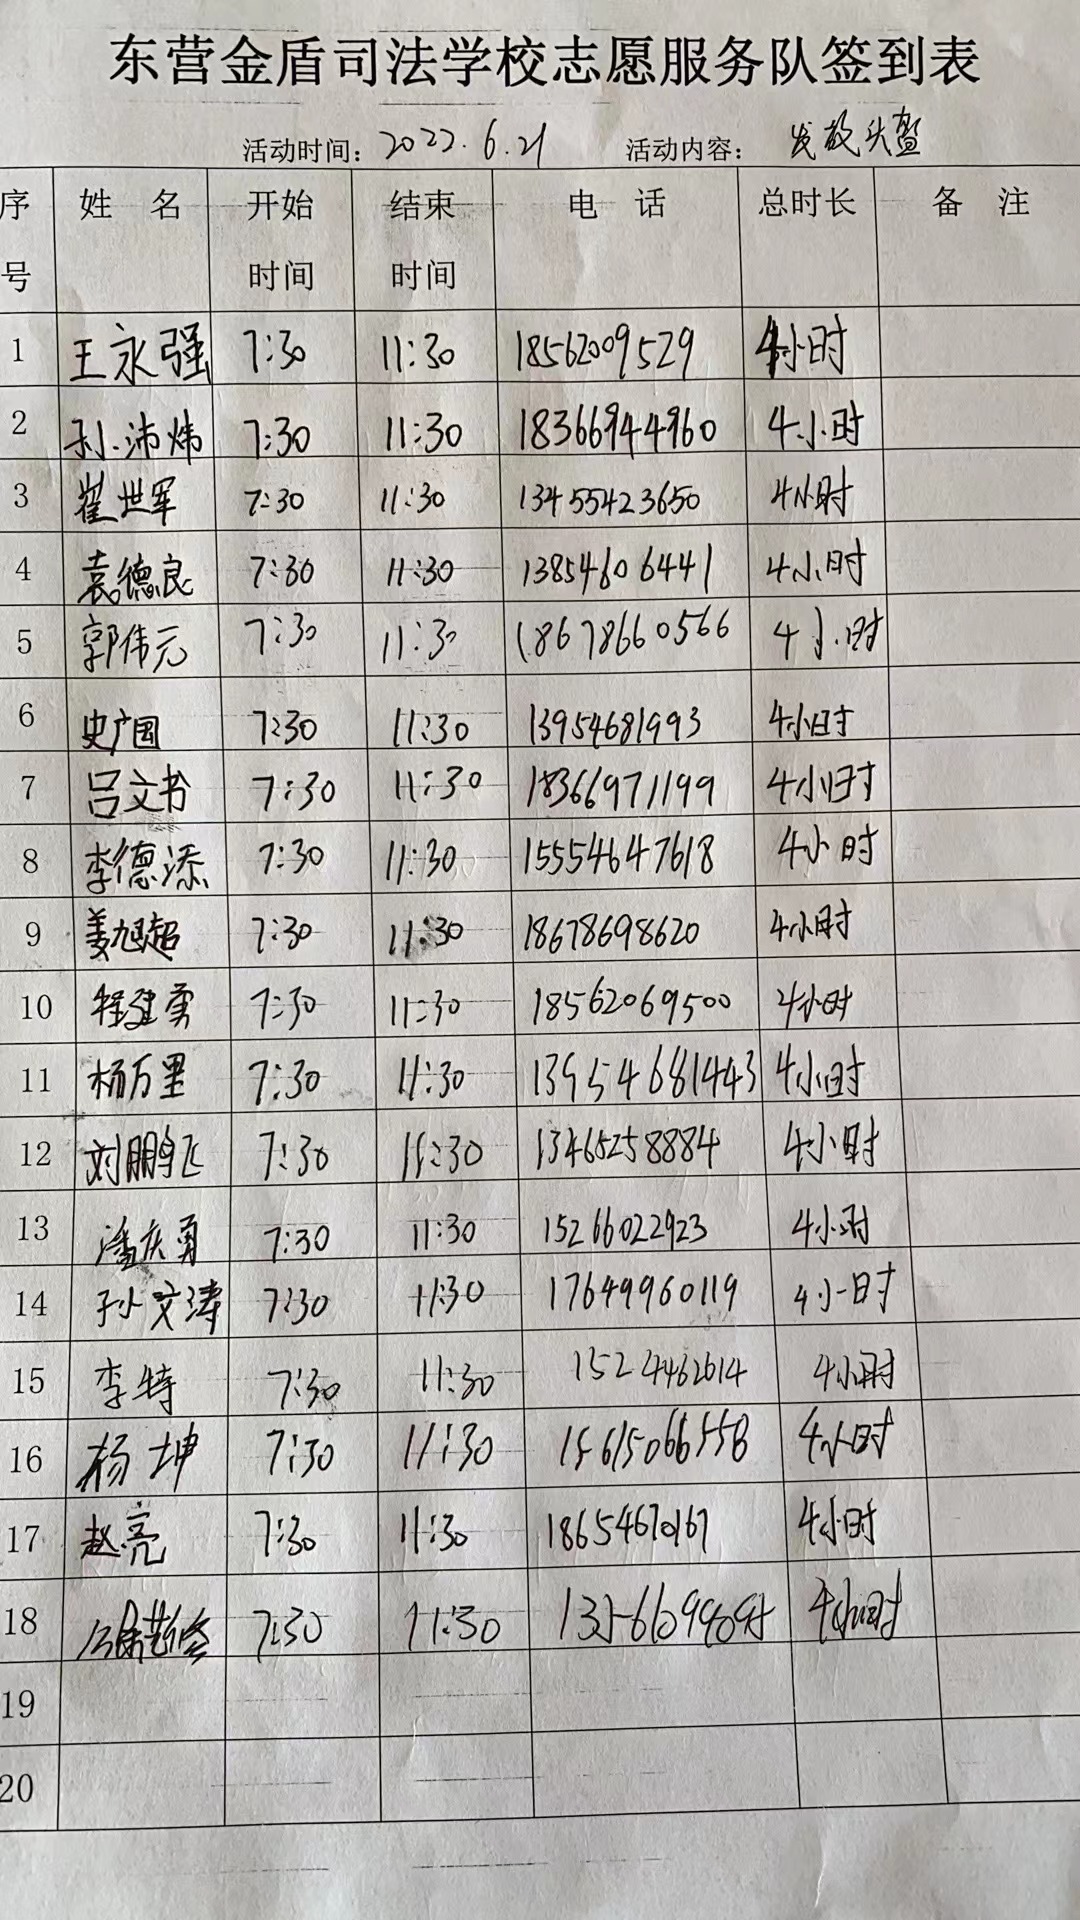 东营金盾司法学校志愿服务队签到表
活动时间：2022.6.21 活动内容：发放头盔
序号 姓 名 开始时间 结束时间 电 话 总时长 备 注
1 王永强 7:30 11:30 18562009529 4小时
2 孙沛炜 7:30 11:30 18366944960 4小时
3 翟世军 7:30 11:30 13455423650 4小时
4 袁德良 7:30 11:30 13854606441 4小时
5 郭伟元 7:30 11:30 18678660566 4小时
6 史广国 7:30 11:30 13954681993 4小时
7 吕文书 7:30 11:30 18366971199 4小时
8 李德添 7:30 11:30 15554647618 4小时
9 姜旭超 7:30 11:30 18678698620 4小时
10 程建勇 7:30 11:30 18562069500 4小时
11 杨万里 7:30 11:30 13954681443 4小时
12 刘鹏飞 7:30 11:30 13465258884 4小时
13 潘庆勇 7:30 11:30 15266022923 4小时
14 孙文涛 7:30 11:30 17649960119 4小时
15 李特 7:30 11:30 4小时
16 杨坤 7:30 11:30 15615066558 4小时
17 赵亮 7:30 11:30 18654670167 4小时
18 7:30 11:30 4小时
19
20